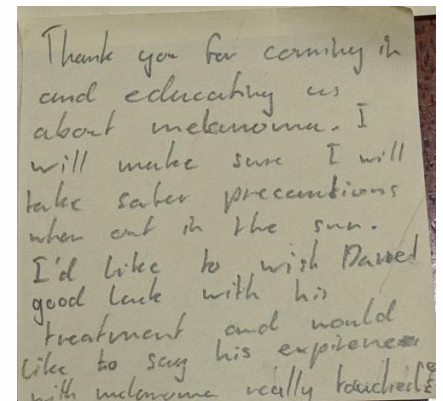 Thank you for coming in
and educating us
about melanoma. I
will make sure I will
take safer precautions
when out in the sun.
I'd like to wish
good luck with his
treatment and would
like to say his expirence
with melanoma really touched